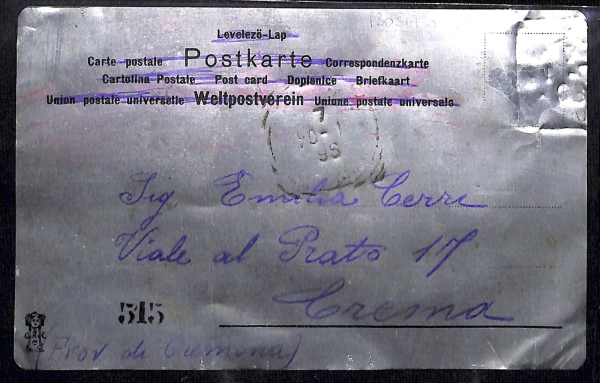 Levelezö-Lap
Carte postale Postkarte Correspondenzkarte
Cartolina Postale Post card Doplenice Briefkaart
Union postale universelle Weltpostverein Unione postale universale
Sig. Emilia Cerri
Viale al Prato 17
Crema
515
(Prov. di Cremona)